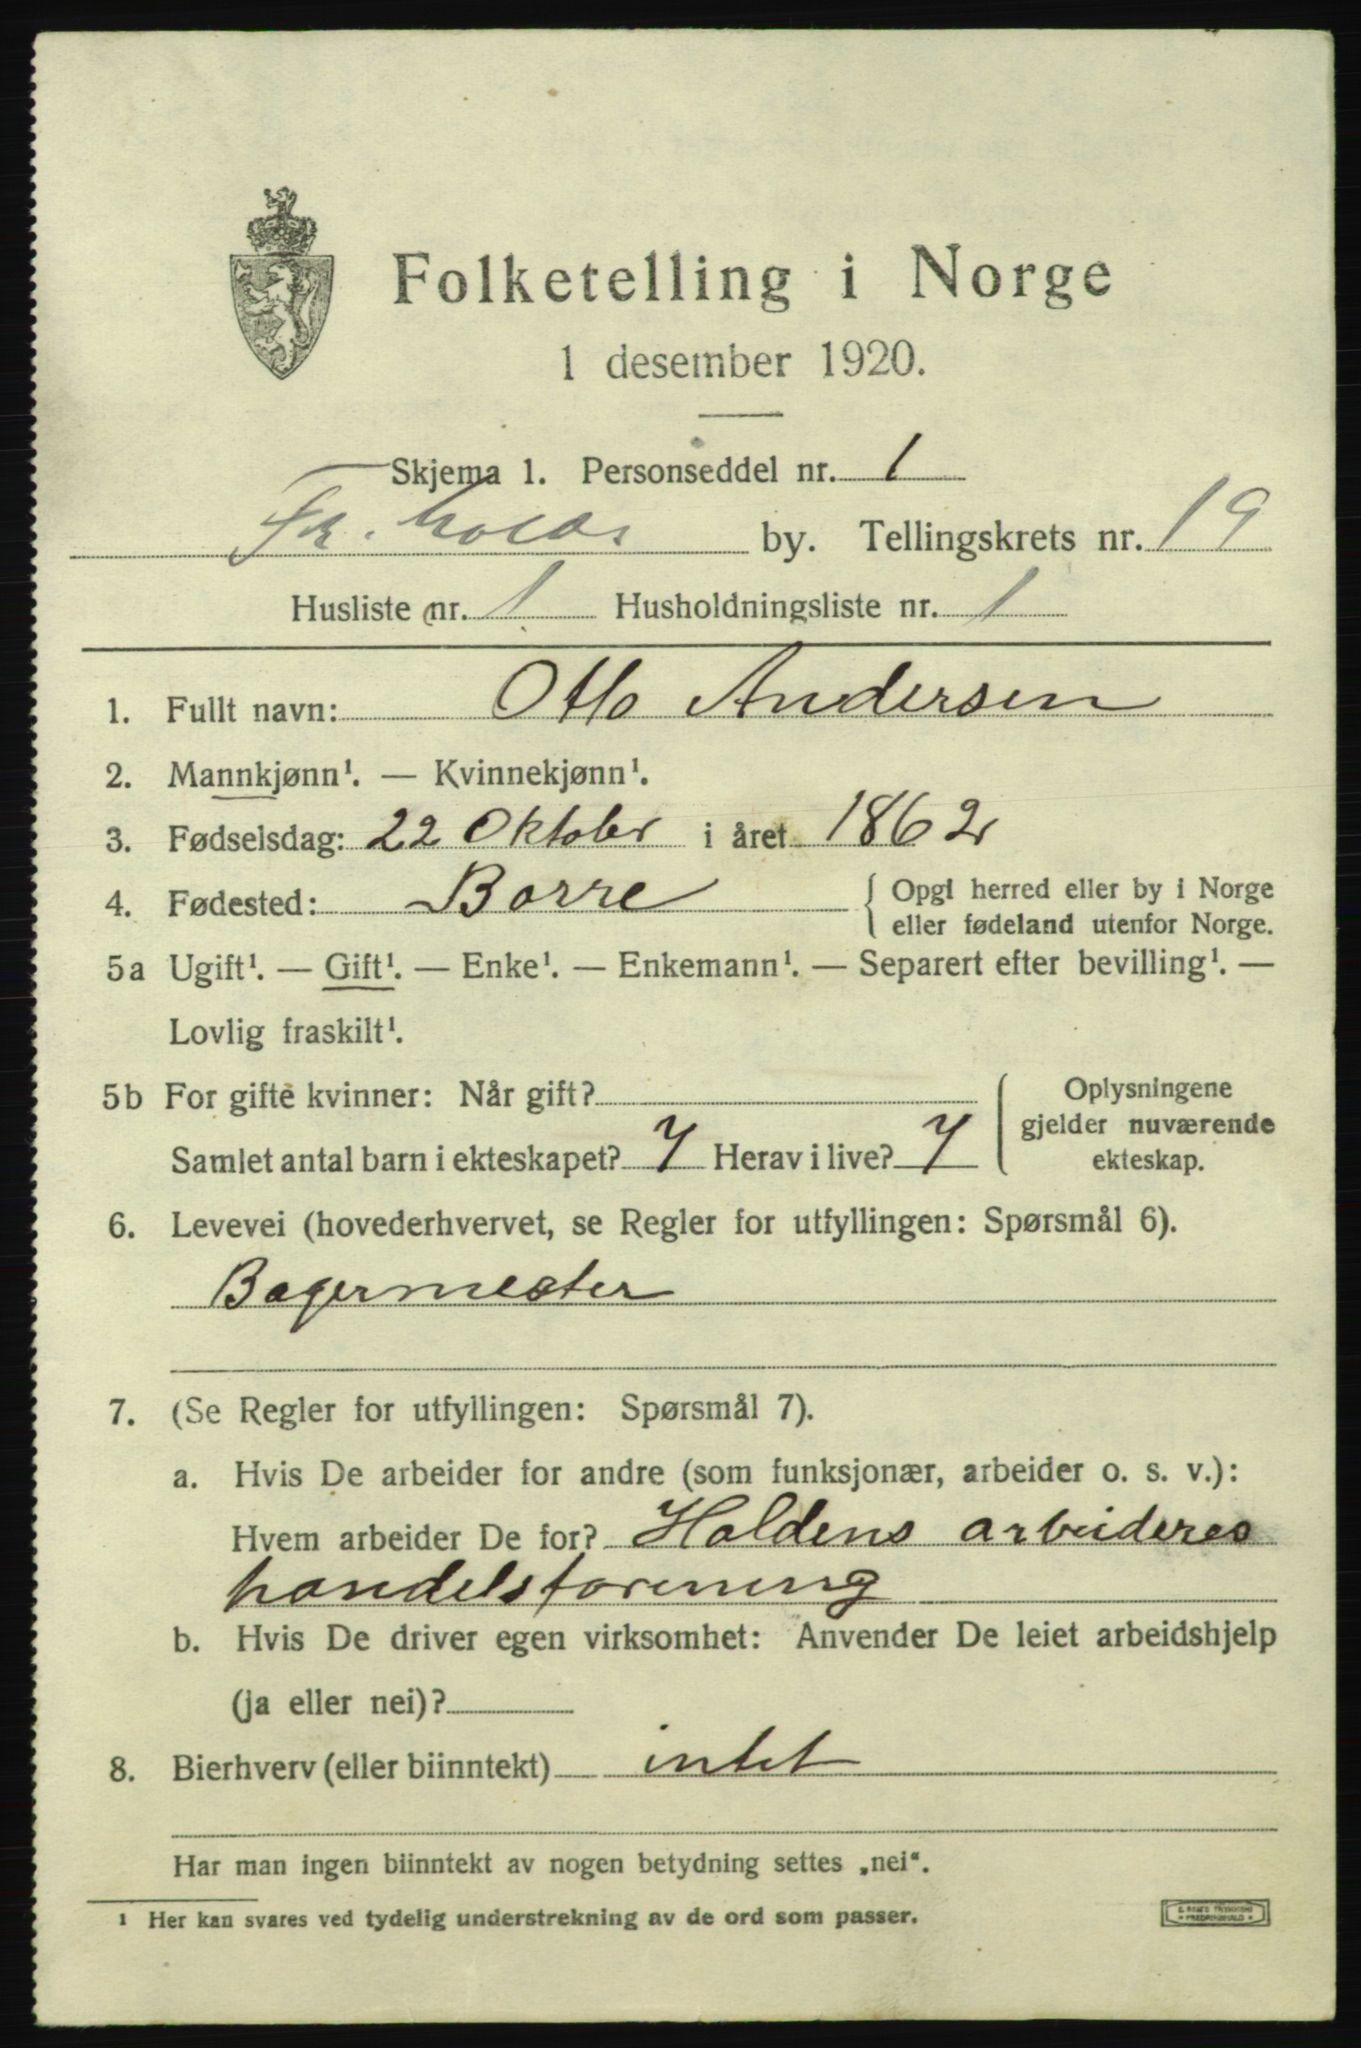 Folketelling i Norge
1 desember 1920.
Skjema 1. Personseddel nr. 1
Fr.halds by. Tellingskrets nr. 19
Husliste nr. 1 Husholdningsliste nr. 1
1. Fullt navn: Otto Andersen
2. Mannkjønn¹. — Kvinnekjønn¹.
3. Fødselsdag: 22 Oktober i året 1862
4. Fødested: Borre { Opgi herred eller by i Norge
eller fødeland utenfor Norge.
5a Ugift¹. — Gift¹. — Enke¹. — Enkemann¹. — Separert efter bevilling¹. —
Lovlig fraskilt¹.
5b For gifte kvinner: Når gift?
Samlet antal barn i ekteskapet? 7 Herav i live? 7
Oplysningene
gjelder nuværende
ekteskap.
6. Levevei (hovederhvervet, se Regler for utfyllingen: Spørsmål 6).
Bagermester
7. (Se Regler for utfyllingen: Spørsmål 7).
a. Hvis De arbeider for andre (som funksjonær, arbeider o. s. v.):
Hvem arbeider De for? Haldens arbeideres
handelsforening
b. Hvis De driver egen virksomhet: Anvender De leiet arbeidshjelp
(ja eller nei)?
8. Bierhverv (eller biinntekt) intet
Har man ingen biinntekt av nogen betydning settes „nei“.
¹ Her kan svares ved tydelig understrekning av de ord som passer.